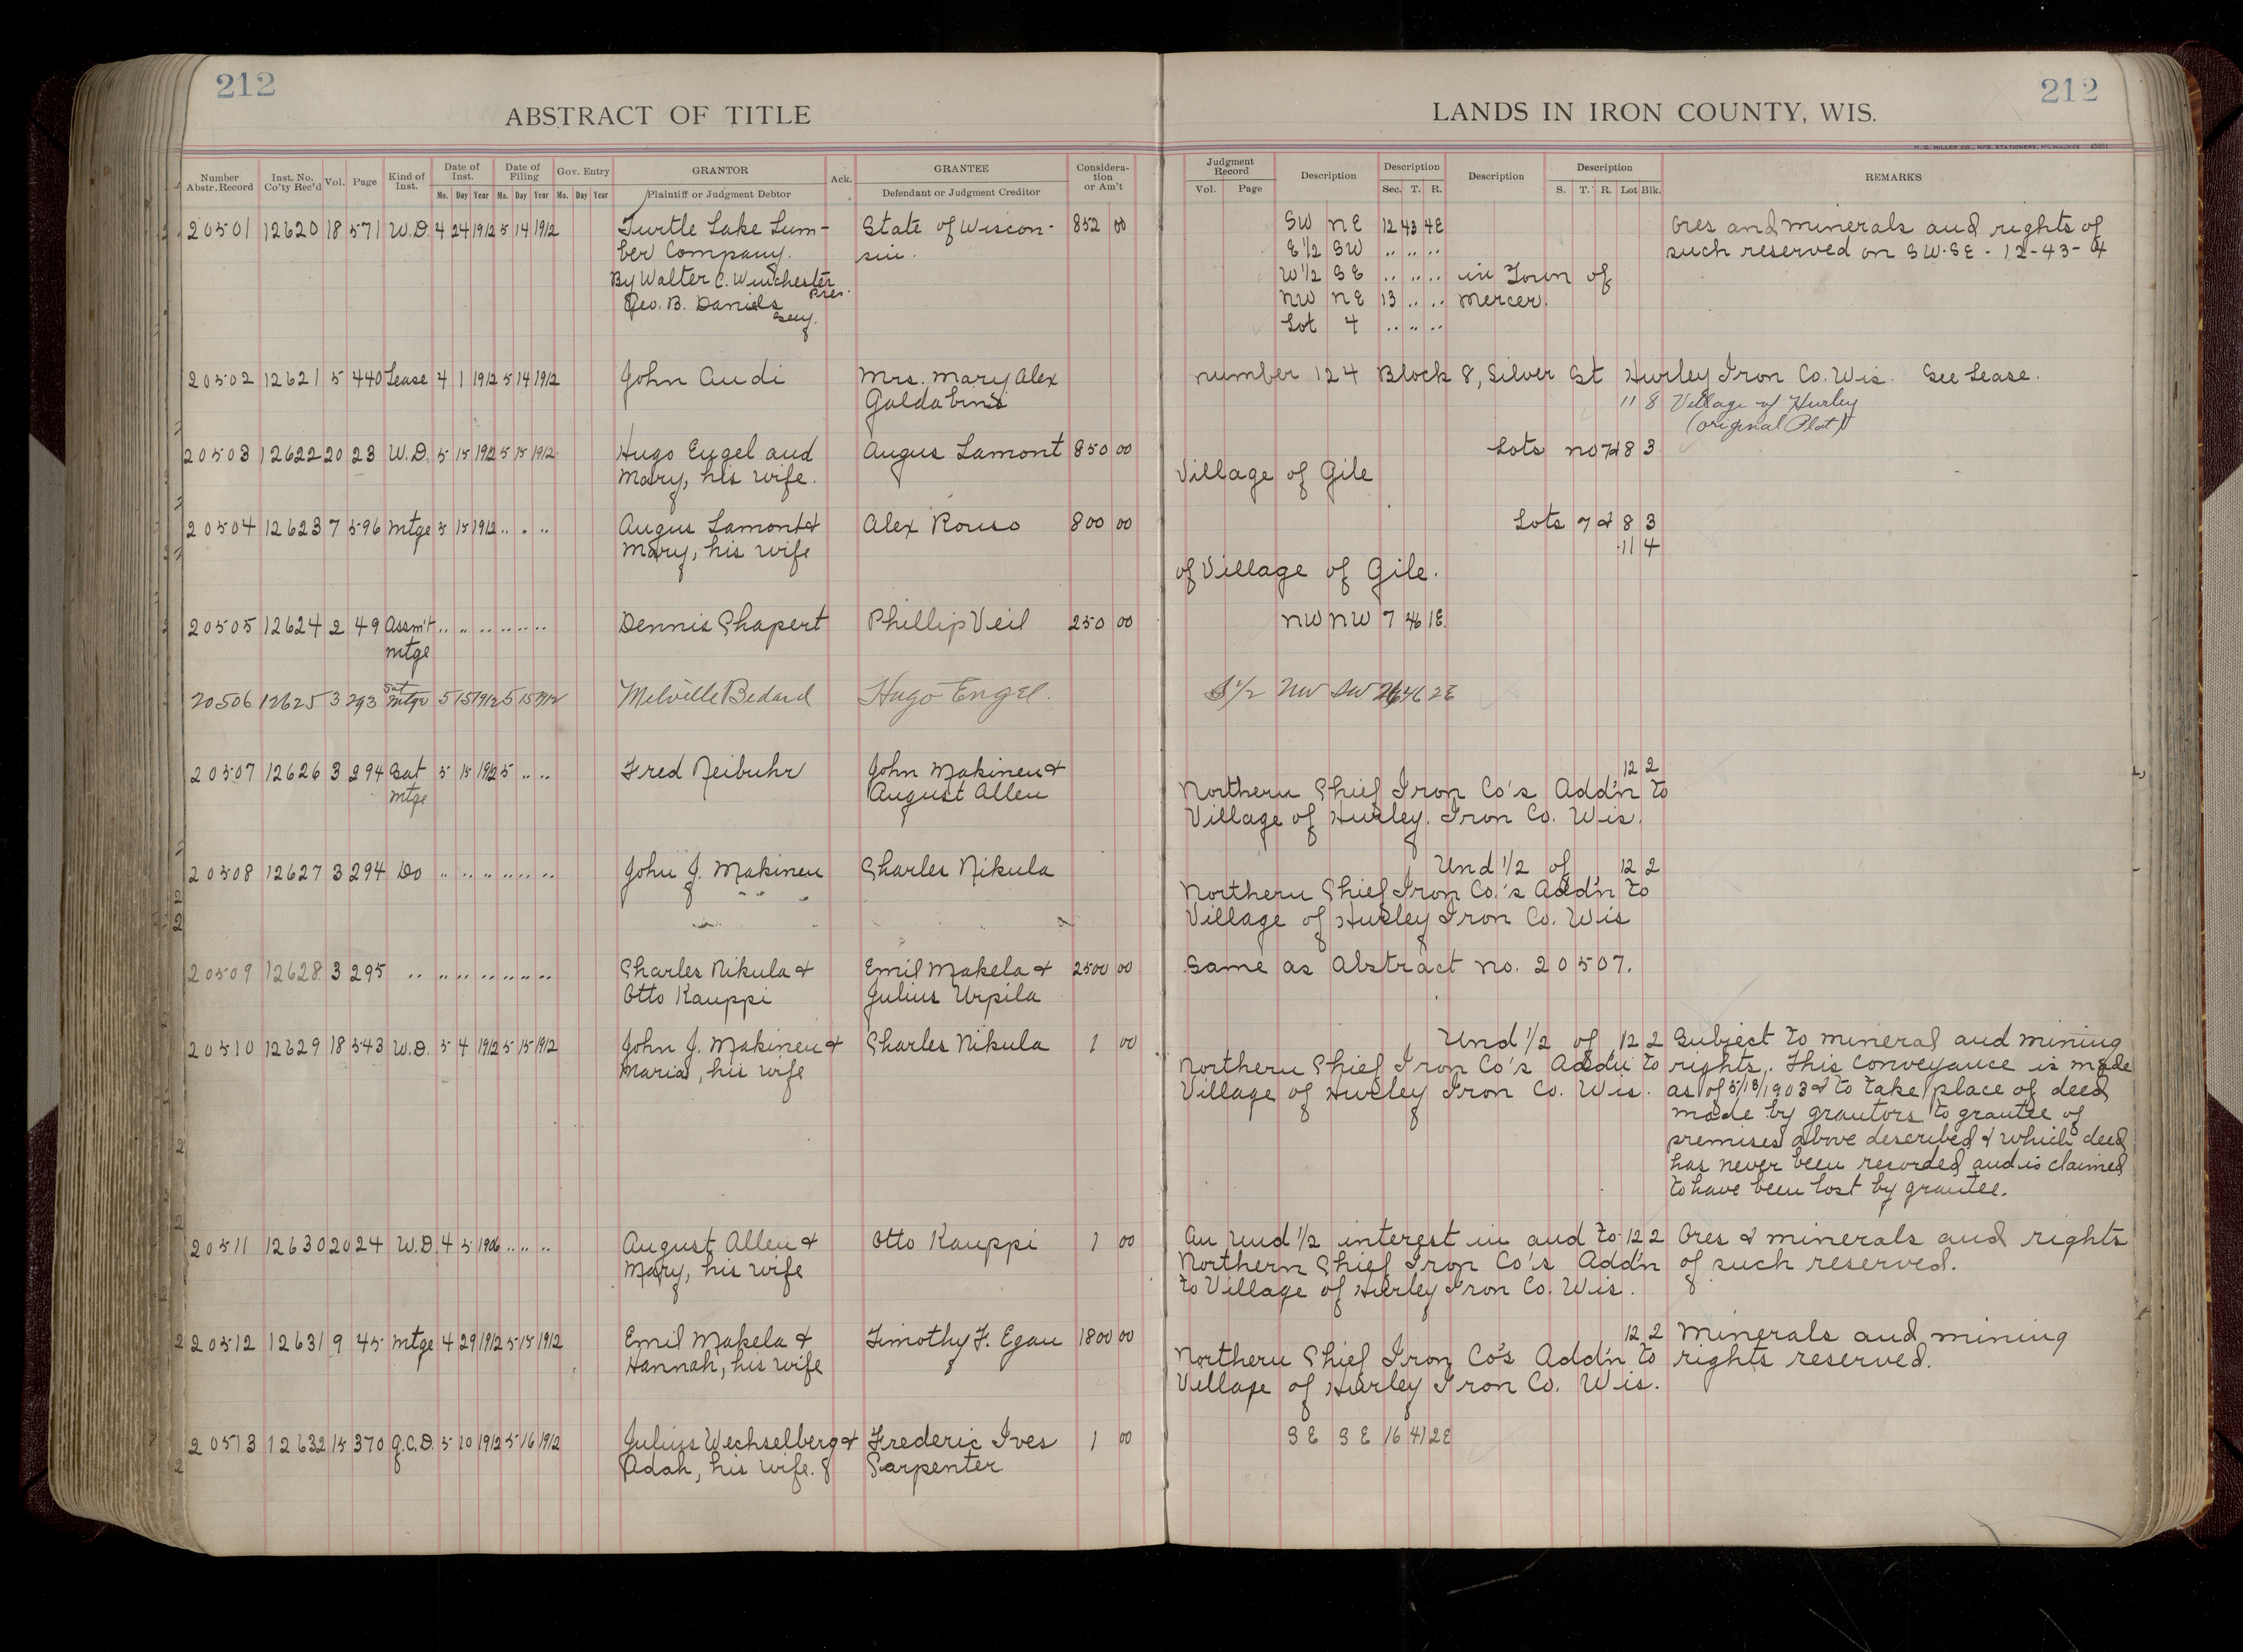 212
212
ABSTRACT OF TITLE
LANDS IN IRON COUNTY, WIS.
H. G. MILLER CO., MFG. STATIONERS, MILWAUKEE 45031
Number Abstr. Record
Inst. No. Co'ty Rec'd
Vol.
Page
Kind of Inst.
Date of Inst.
Mo. Day Year
Date of Filing
Mo. Day Year
Gov. Entry
Mo. Day Year
GRANTOR
Plaintiff or Judgment Debtor
Ack.
GRANTEE
Defendant or Judgment Creditor
Considera-tion or Am't
Judgment Record
Vol. Page
Description
Description
Sec. T. R.
Description
Description
S. T. R. Lot Blk.
REMARKS
20501 12620 18 571 W.D. 4 24 1912 5 14 1912 Turtle Lake Lum- State of Wiscon- 852 00 SW NE 12 43 4E Ores and minerals and rights of
ber Company. sin. E 1/2 SW .. .. .. such reserved on SW-SE-12-43-4
By Walter C. Winchester Pres. W 1/2 SE .. .. .. in Town of
Geo. B. Daniels Secy. NW NE 13 .. .. Mercer.
Lot 4 .. .. ..
20502 12621 5 440 Lease 4 1 1912 5 14 1912 John Audi Mrs. Mary Alex number 124 Block 8, Silver St Hurley Iron Co. Wis. See Lease.
11 8 Village of Hurley
(original Plat)
20503 12622 20 23 W.D. 5 15 1912 5 15 1912 Hugo Engel and Angus Lamont 850 00 Lots no 7&8 3
Mary, his wife. Village of Gile
20504 12623 7 596 Mtge 5 15 1912 .. .. .. Angus Lamont & Alex Rouso 800 00 Lots 7 & 8 3
Mary, his wife 11 4
of Village of Gile.
20505 12624 2 49 Assm't .. .. .. .. .. .. Dennis Chapert Phillip Veil 250 00 NW NW 7 46 1E.
Mtge
20506 12625 3 293 Sat Mtge 5 15 1912 5 15 1912 Melville Bedard Hugo Engel. S 1/2 NW SW 26 46 2E
20507 12626 3 294 Sat 5 15 1912 5 .. .. Fred Neibuhr John Makinen & 12 2
Mtge August Allen Northern Chief Iron Co's Add'n to
Village of Hurley. Iron Co. Wis.
20508 12627 3 294 Do .. .. .. .. .. .. John J. Makinen Charles Nikula Und 1/2 of 12 2
Northern Chief Iron Co.'s Add'n to
Village of Hurley Iron Co. Wis
20509 12628 3 295 .. .. .. .. .. .. .. Charles Nikula & Emil Makela & 2500 00 Same as Abstract no. 20507.
Otto Kauppi Julius Urpila
20510 12629 18 543 W.D. 5 4 1912 5 15 1912 John J. Makinen & Charles Nikula 1 00 Und 1/2 of 12 2 Subject to mineral and mining
Maria, his wife Northern Chief Iron Co's Add'n to rights. This conveyance is made
Village of Hurley Iron Co. Wis. as of 5/18/1903 & to take place of deed
made by grantors to grantee of
premises above described & which deed
has never been recorded and is claimed
to have been lost by grantee.
20511 12630 20 24 W.D. 4 5 1906 .. .. .. August Allen & Otto Kauppi 1 00 An Und 1/2 interest in and to 12 2 Ores & minerals and rights
Mary, his wife Northern Chief Iron Co's Add'n of such reserved.
to Village of Hurley Iron Co. Wis.
20512 12631 9 45 Mtge 4 29 1912 5 15 1912 Emil Makela & Timothy F. Egan 1800 00 12 2 Minerals and mining
Hannah, his wife Northern Chief Iron Co's Add'n to rights reserved.
Village of Hurley Iron Co. Wis.
20513 12632 15 370 Q.C.D. 5 10 1912 5 16 1912 Julius Wechselberg & Frederic Ives 1 00 SE SE 16 41 2E
Adah, his wife. Carpenter